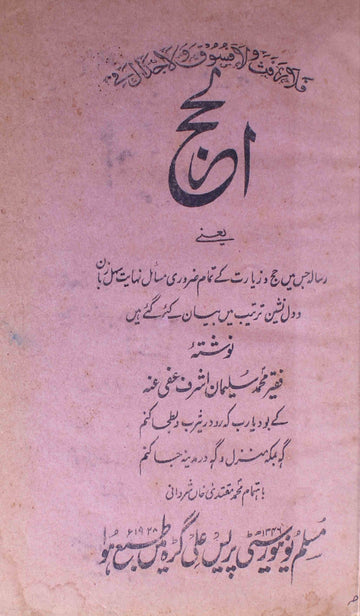 فلا رفث ولا فسوق ولا جدال فی
الحج
یعنے
رسالہ جس میں حج و زیارت کے تمام ضروری مسائل نہایت سہل زبان
و دل نشین ترتیب میں بیان کئے گئے ہیں
نوشتۂ
فقیر محمد سلیمان اشرف عفی عنہ
کے بود یارب کہ رو در یثرب و بطحا کنم
گہ بمکہ منزل و گہ در مدینہ جا کنم
باہتمام محمد مقتدیٰ خاں شروانی
۱۳۴۶ھ ۱۹۲۸ء
مسلم یونیورسٹی پریس علی گڑھ میں طبع ہوا